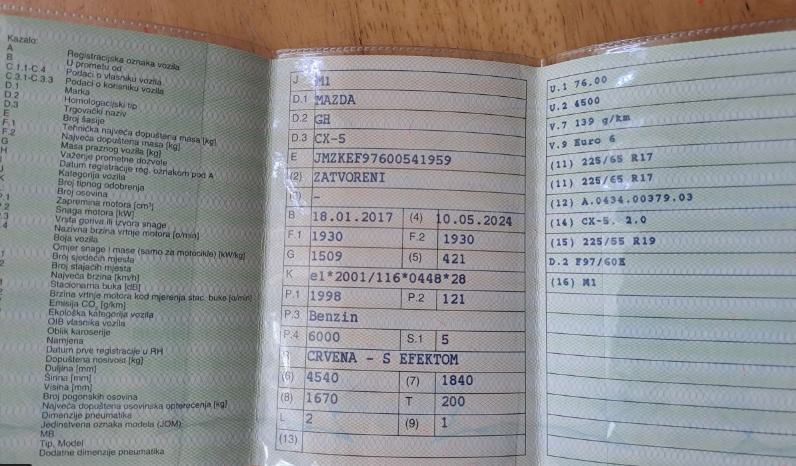 Kazalo:
A Registracijska oznaka vozila
B U prometu od
C.1.1-C.4 Podaci o vlasniku vozila
C.3.1-C.3.3 Podaci o korisniku vozila
D.1 Marka
D.2 Homologacijski tip
D.3 Trgovački naziv
E Broj šasije
F.1 Tehnička najveća dopuštena masa [kg]
F.2 Najveća dopuštena masa [kg]
G Masa praznog vozila [kg]
H Važenje prometne dozvole
Datum registracije reg. oznakom pod A
J Kategorija vozila
K Broj tipnog odobrenja
Broj osovina
Zapremina motora [cm³]
Snaga motora [kW]
Vrsta goriva ili izvora snage
Nazivna brzina vrtnje motora [o/min]
Boja vozila
Omjer snage i mase (samo za motocikle) [kW/kg]
Broj sjedećih mjesta
Broj stajaćih mjesta
Najveća brzina [km/h]
Stacionarna buka [dB]
Brzina vrtnje motora kod mjerenja stac. buke [o/min]
Emisija CO₂ [g/km]
Ekološka kategorija vozila
OIB vlasnika vozila
Oblik karoserije
Namjena
Datum prve registracije u RH
Dopuštena nosivost [kg]
Duljina [mm]
Širina [mm]
Visina [mm]
Broj pogonskih osovina
Najveća dopuštena osovinska opterećenja [kg]
Dimenzije pneumatika
Jedinstvena oznaka modela (JOM)
MB
Tip, Model
Dodatne dimenzije pneumatika
J M1
D.1 MAZDA
D.2 GH
D.3 CX-5
E JMZKEF97600541959
(2) ZATVORENI
(3) -
B 18.01.2017 (4) 10.05.2024
F.1 1930 F.2 1930
G 1509 (5) 421
K e1*2001/116*0448*28
P.1 1998 P.2 121
P.3 Benzin
P.4 6000 S.1 5
R CRVENA - S EFEKTOM
(6) 4540 (7) 1840
(8) 1670 T 200
L 2 (9) 1
(13)
U.1 76,00
U.2 4500
V.7 139 g/km
V.9 Euro 6
(11) 225/65 R17
(11) 225/65 R17
(12) A.0434.00379.03
(14) CX-5. 2.0
(15) 225/55 R19
D.2 F97/60K
(16) M1